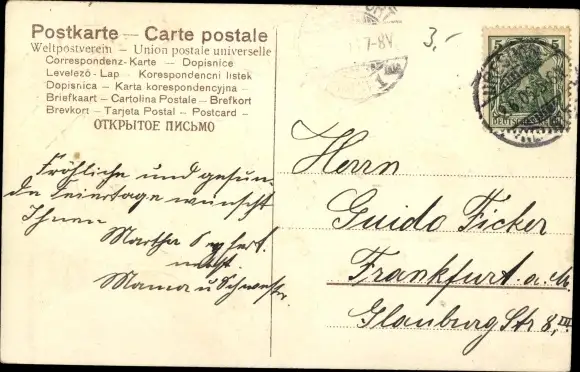 Postkarte — Carte postale
Weltpostverein — Union postale universelle
Correspondenz-Karte — Dopisnice
Levelező-Lap — Korespondencni listek
Dopisnica — Karta korespondencyjna —
Briefkaart — Cartolina Postale — Brefkort
Brevkort — Tarjeta Postal — Postcard —
ОТКРЫТОЕ ПИСЬМО
7-8V.
3,-
5 5
Fröhliche und gesun-
de Feiertage wünscht
Ihnen
Martha
nebst
Mama u Schwestr.
Herrn
Guido Ficker
Frankfurt a. M.
Glauburg Str 8, III.